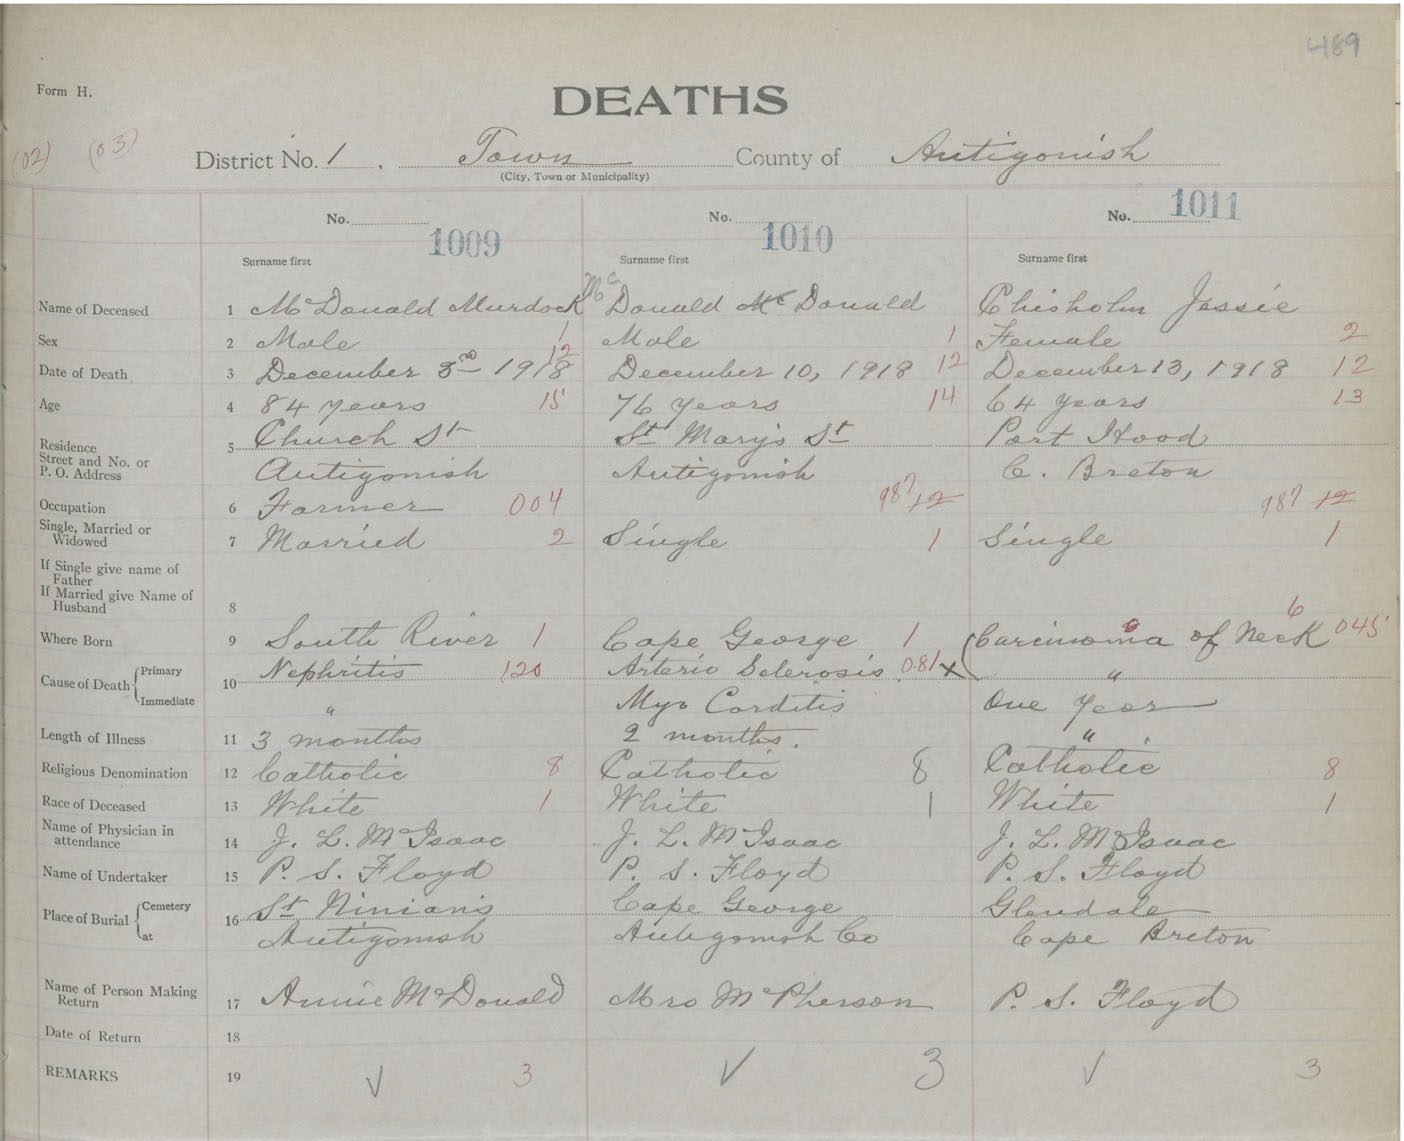 489
Form H.
DEATHS
(02) (03)
District No. 1 . Town County of Antigonish
(City, Town or Municipality)
No. No. No. 1011
1009 1010
Surname first Surname first Surname first
Mc
Name of Deceased 1 McDonald Murdock Donald Mc Donald Chisholm Jessie
Sex 2 Male 1 Male 1 Female 2
Date of Death 3 December 3rd 1918 12 December 10, 1918 12 December 13, 1918 12
Age 4 84 years 15 76 years 14 64 years 13
Residence
Street and No. or
P. O. Address
5 Church St St Mary's St Port Hood
Antigonish Antigonish C. Breton
Occupation 6 Farmer 004 987 12 987 12
Single, Married or
Widowed
7 Married 2 Single 1 Single 1
If Single give name of
Father
If Married give Name of
Husband
8
6
Where Born 9 South River 1 Cape George 1 Carcinoma of Neck 045
Cause of Death Primary 10 Nephritis 120 Arterio Sclerosis 081 x "
Immediate " Myo Carditis One Year
Length of Illness 11 3 months 2 months. "
Religious Denomination 12 Catholic 8 Catholic 8 Catholic 8
Race of Deceased 13 White 1 White 1 White 1
Name of Physician in
attendance
14 J. L. McIsaac J. L. McIsaac J. L. McIsaac
Name of Undertaker 15 P. S. Floyd P. S. Floyd P. S. Floyd
Place of Burial Cemetery 16 St Ninian's Cape George Glendale
at Antigonish Antigonish Co Cape Breton
Name of Person Making
Return
17 Annie McDonald Mrs McPherson P. S. Floyd
Date of Return 18
REMARKS 19 ✓ 3 ✓ 3 ✓ 3